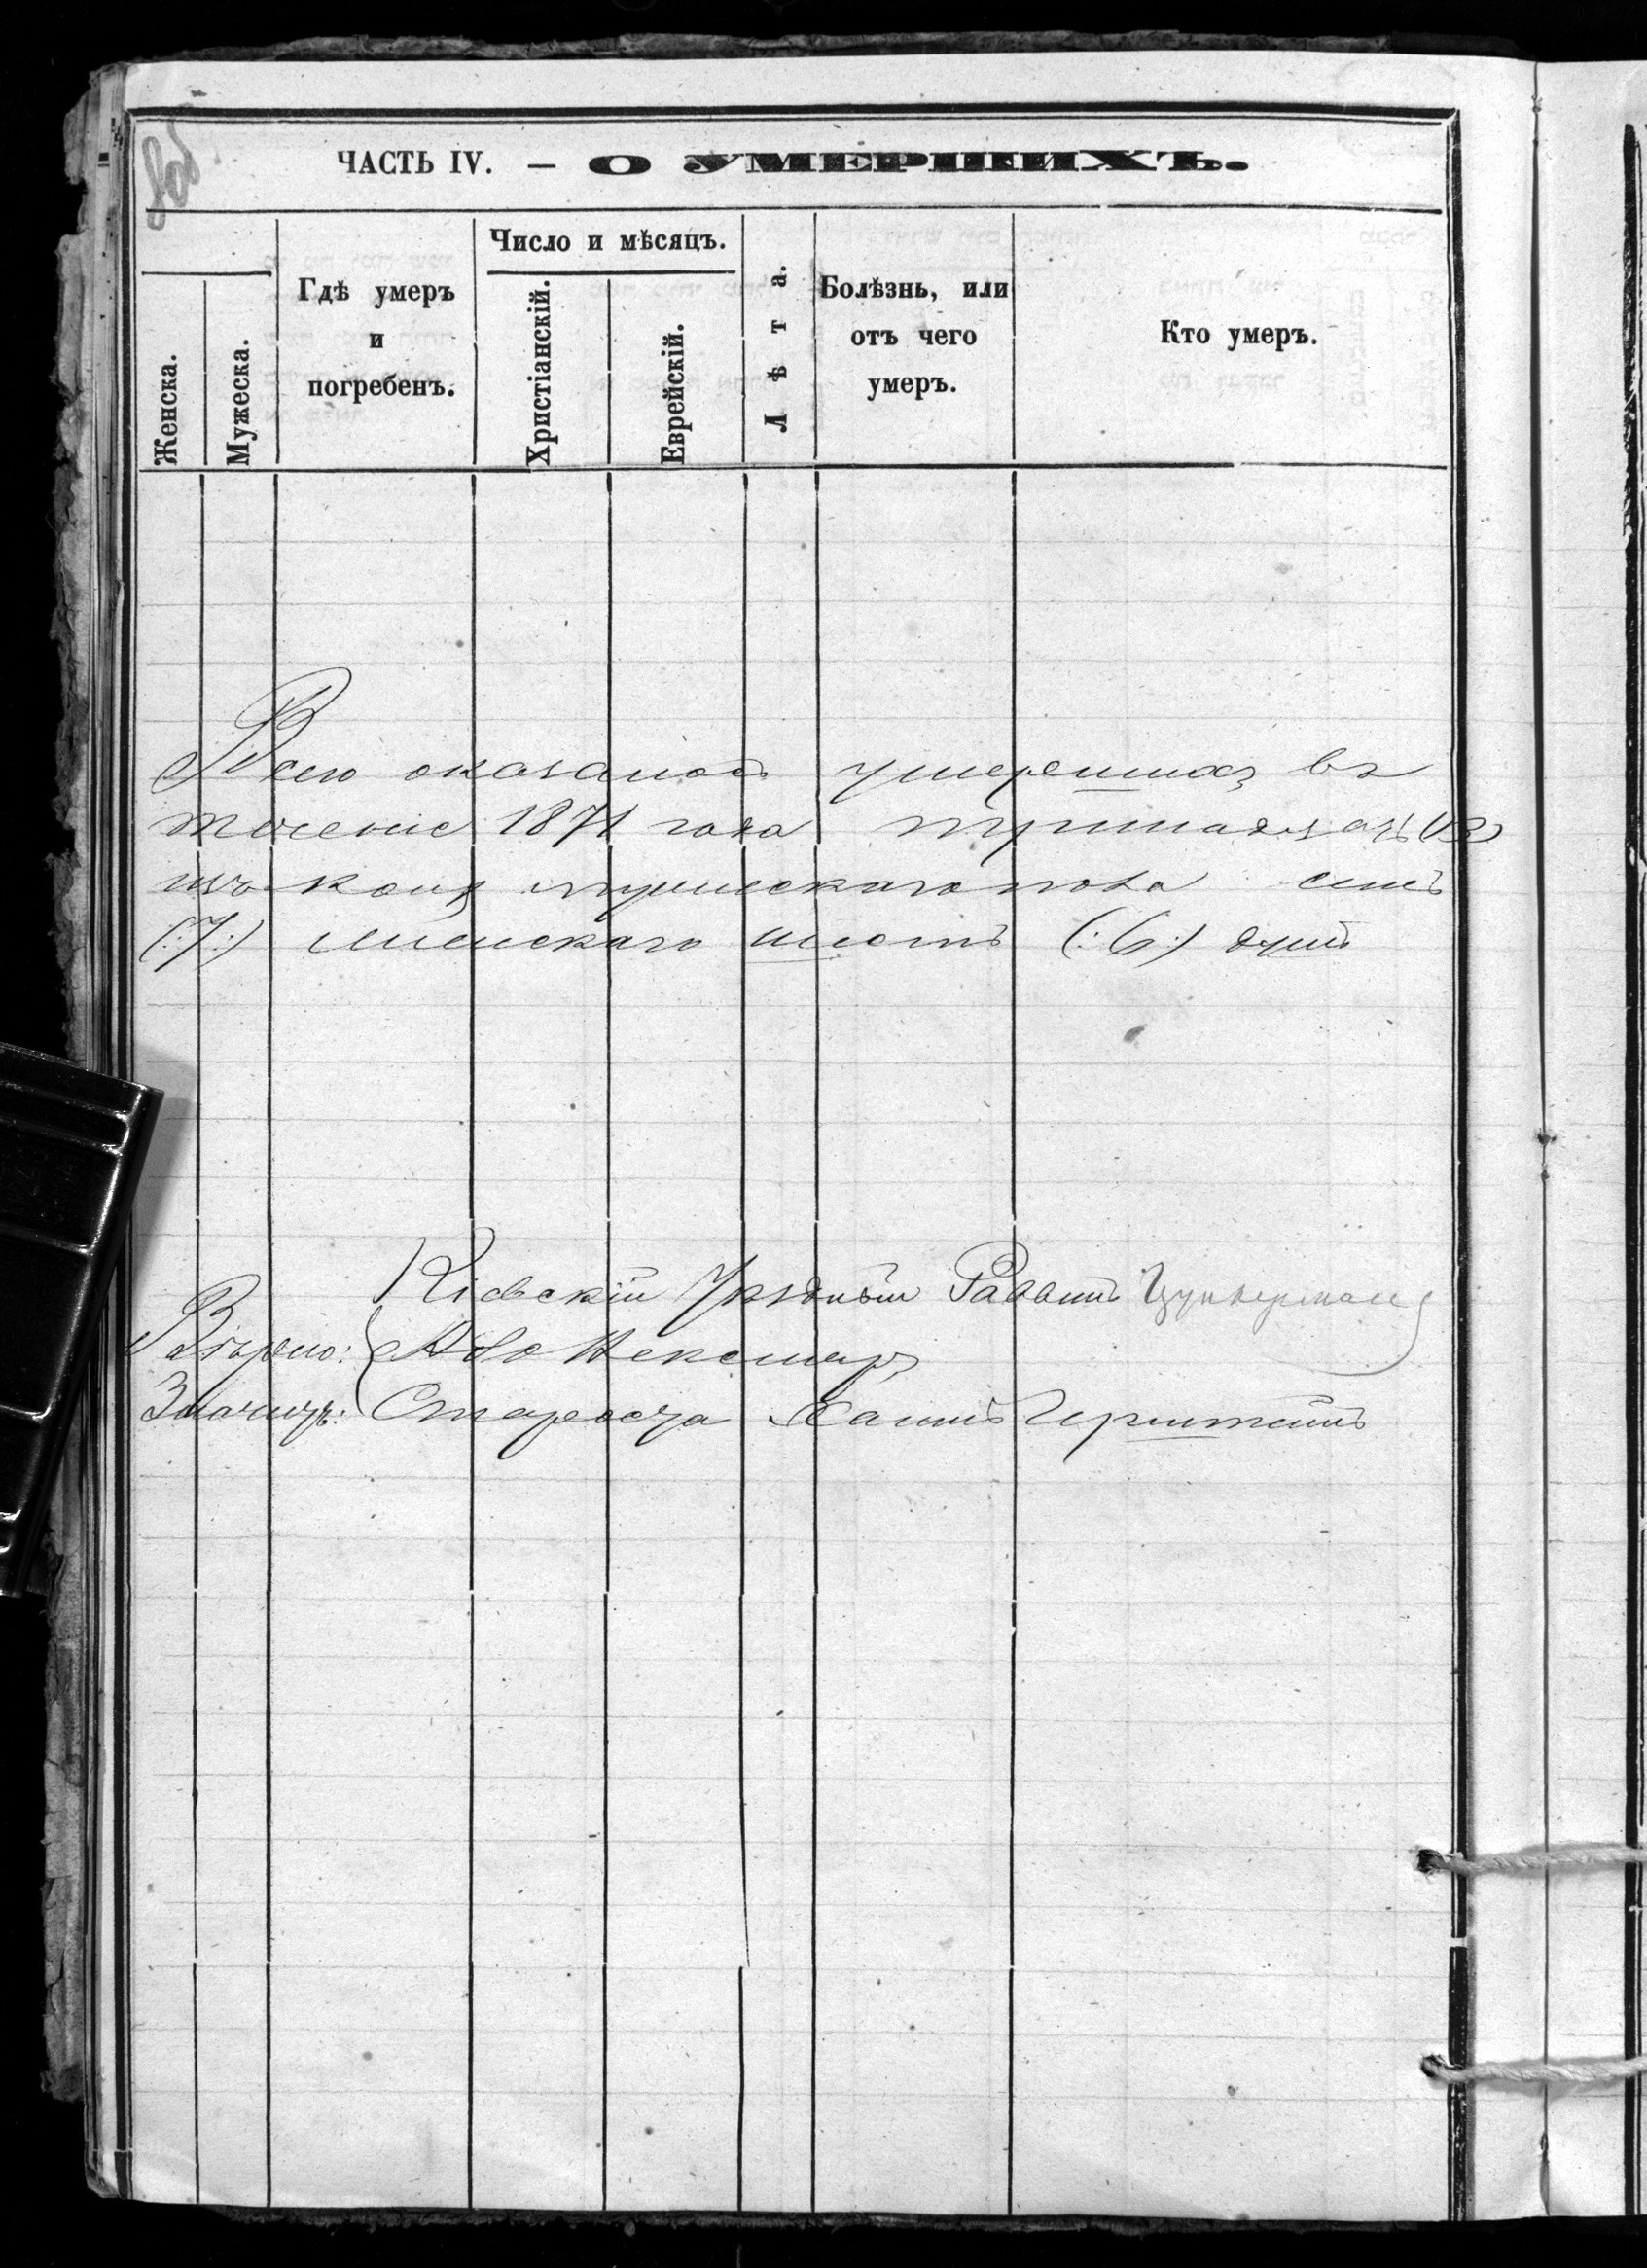 80об
ЧАСТЬ IV. — О УМЕРШИХЪ.
Женска.
Мужеска.
Гдѣ умеръ
и
погребенъ.
Число и мѣсяцъ.
Христіанскій.
Еврейскій.
Лѣта.
Болѣзнь, или
отъ чего
умеръ.
Кто умеръ.
Всего оказалось умершихъ въ
теченіе 1871 года тринадцать (13)
изъ коихъ мужескаго пола семь
(:7:) женскаго шесть (:6:) душъ
Кіевскій Уѣздный Раввинъ Цукерманъ
Вѣрно:
Значитъ: Староста Хаимъ